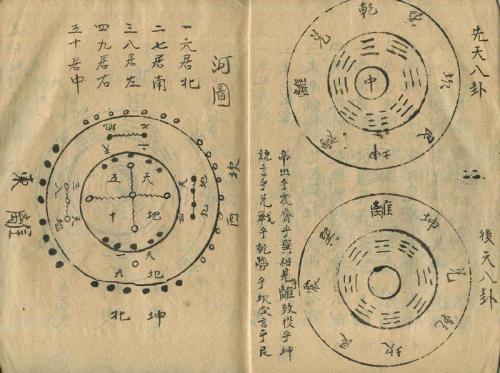 先天八卦
乾
兌
離
震
坤
艮
坎
中
後天八卦
離
坤
兌
乾
坎
艮
震
巽
帝出乎震齊乎巽相見乎離致役乎坤
說言乎兌戰乎乾勞乎坎成言乎艮
河圖
一六居北
二七居南
三八居左
四九居右
五十居中
坎
西
東
離
天
五
地
十
天
地
六
坤
北